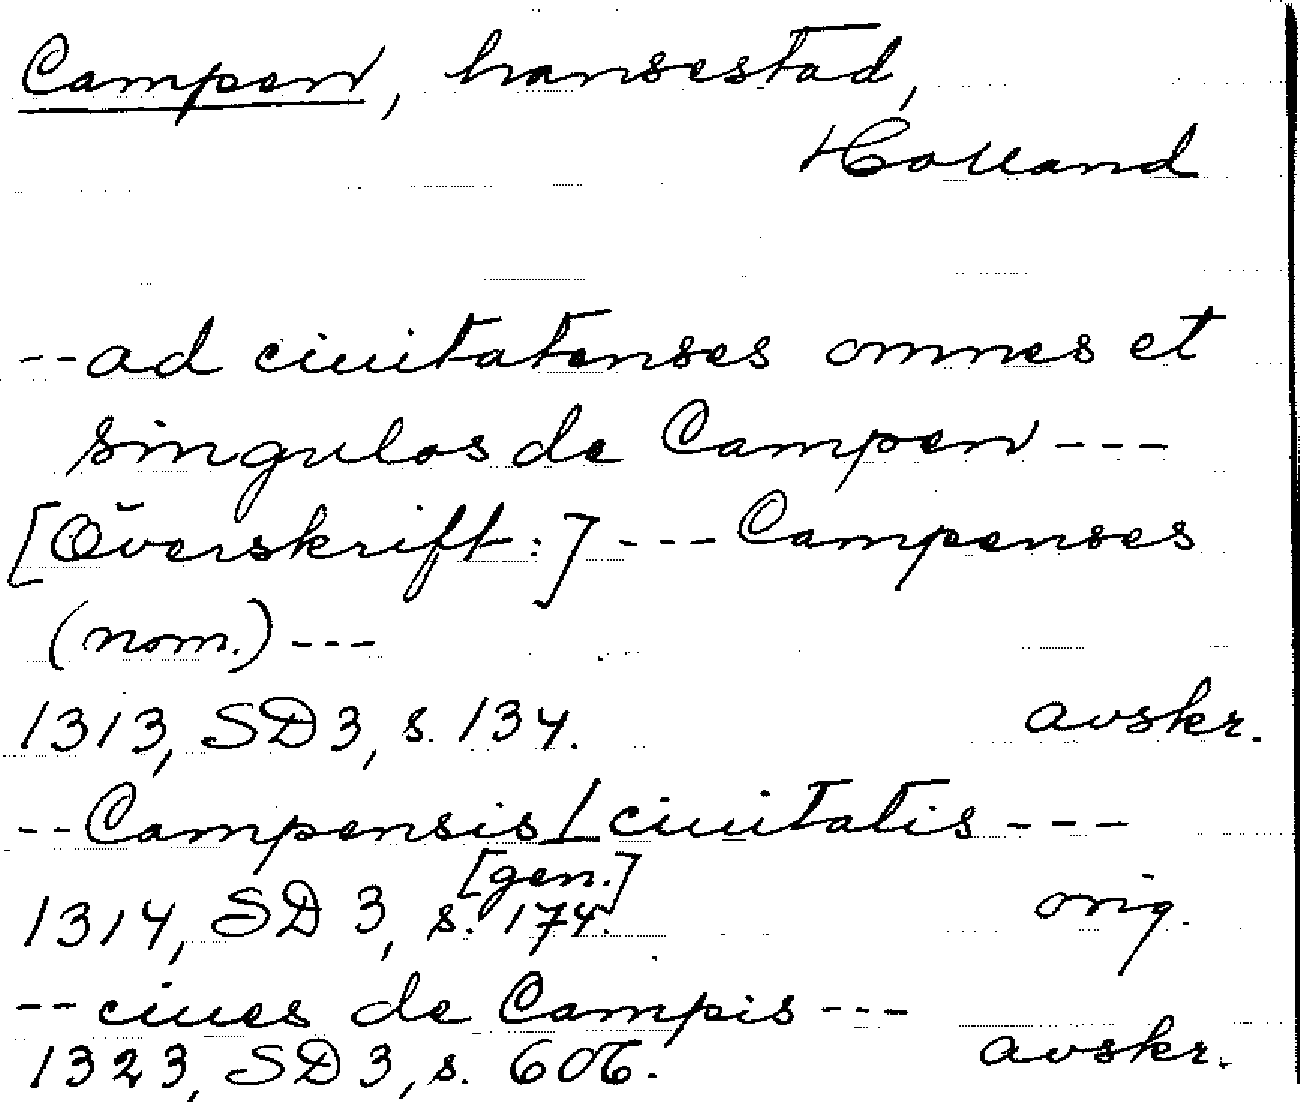 Campen, hansestad,
Holland
--ad ciuitatenses omnes et
singulos de Campen ---
[Överskrift:] --- Campenses
(nom.) ---
1313, SD 3, s. 134. avskr.
--Campensis/ciuitatis ---
[gen.]
1314, SD 3, s. 174. orig.
--ciues de Campis ---
1323, SD 3, s. 606. avskr.